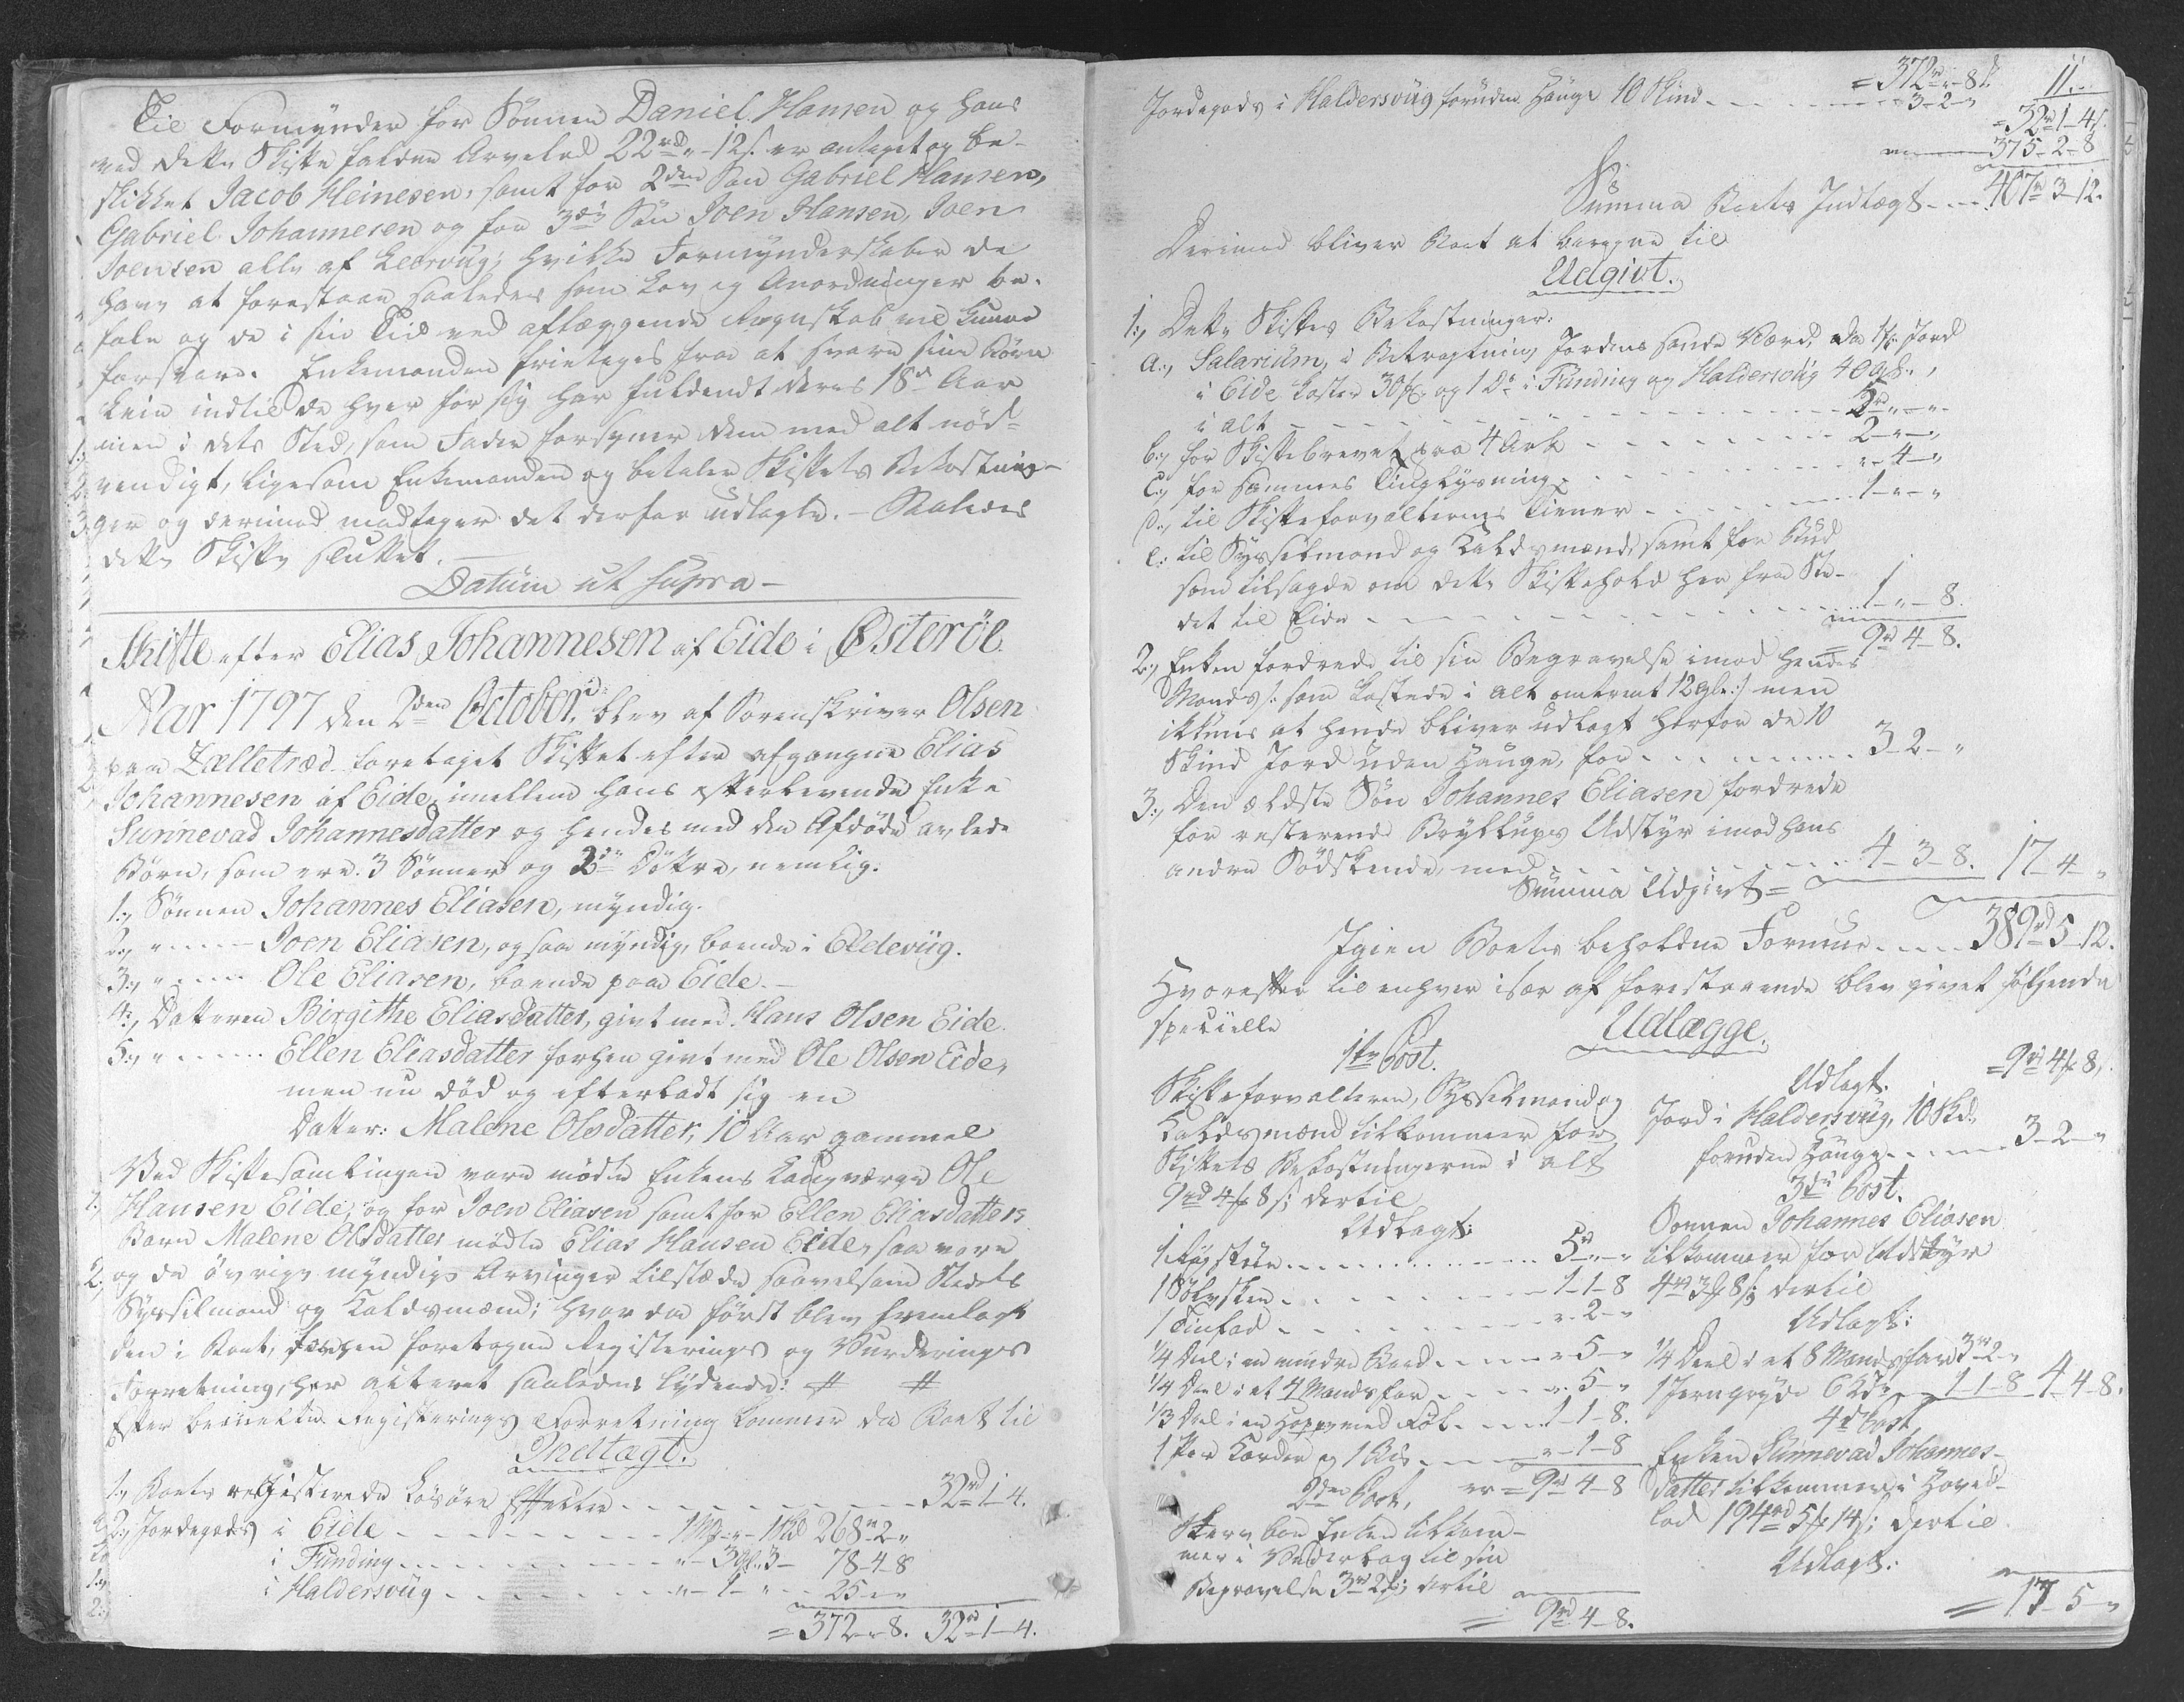 Til Formynder for Sönnen Daniel Hansen og hans
ved dette Skifte faldne Arvelod 22rd „ 12s. er antaget og be-
skikket Jacob Heinesen, samt for 2den Søn Gabriel Hansen,
Gabriel Johannesen og for 3die Søn Joen Hansen, Joen
Joensen alle af Leervüg; hvilke Formynderskaber de
have at forestaae saaledes som Lov og Anordninger be-
fale og de i sin Tid ved aflæggende Regnskab vil kunne
forsvare. Enkemanden frietages fra at svare sine Börn
Leie indtil de hver for sig har fuldendt deres 18de Aar
men i dets Sted, som Fader forsyner dem med alt nöd-
vendigt, ligesom Enkemanden og betaler Skiftets Bekostnin-
ger og derimod modtager det derfor udlagte. – Saaledes
dette Skifte sluttet. –
Datum ut supra –
Skifte efter Elias Johannesen af Eide i Østeröe.
Aar 1797 den 2den October, blev af Sorenskriver Olsen
paa Zælletræd foretaget Skiftet efter afgangne Elias
Johannesen af Eide, imellem hans efterlevende Enke
Sunnevad Johannesdatter og hendes med den Afdöde avlede
Börn, som ere 3 Sönner og 2de Döttre, nemlig:
1., Sönnen Johannes Eliasen, myndig.
2., „ – – Joen Eliasen, ogsaa myndig, boende i Eldevüg.
3., „ – – Ole Eliasen, boende paa Eide. –
4., Datteren Birgithe Eliasdatter, givt med Hans Olsen Eide.
5., „ – – Ellen Eliasdatter forhen givt med Ole Olsen Eide,
men nu död og efterladt sig en
Datter: Malene Olsdatter, 10 Aar gammel
Ved Skiftesamlingen vare mödte Enkens Laugværge Ole
Hansen Eide, og for Joen Eliasen samt for Ellen Eliasdatters
Barn Malene Olsdatter mödte Elias Hansen Eide, saa vare
og de övrige myndige Arvinger tilstæde saavelsom Stedets
Sysselmand og Laldsmænd; hvor da först blev fremlagt
den i Boet, forhen foretagne Registerings og Vurderings
Forretning, her acteret saaledes lydende: # #
Efter bemeldte Registerings Forretning kommer da Boet til
Indtægt.
1., Boets registerede Lösöre Effecter – – – 32rd 1–4.
2., Jordegods i Eide – – – 1Mk „ – 1Skd 268rd 2 „
i Funding – – – „ – 3gl. 3 – 78–4–8
i Haldersvüg – – – „ – 1 – „ – 25 – „ „
= 372 „ 8. 32rd 1–4.
= 372rd „ – 8s. 11. –
Jordegods i Haldersvüg foruden Hauge 10 Skind – – – 3–2–„
= 32rd 1–4s.
375–2–8
Summa Boets Indtægt – – 407rd 3–12.
Derimod bliver Boet at beregne til
Udgivt.
1., Dette Skiftes Bekostninger:
a., Salarium, i Betragtning Jordens sande Værd, da 1 Jord
i Eide koster 30 og 1 Do i Funding og Haldersvüg 40 gl.,
i alt – – – 5rd „ – „
b., for Skiftebrevet paa 4 Ark – – – 2 – „ – „
c., for sammes Tinglysning – – – „ – 4 – „
d., til Skifteforvalterens Tiener – – – 1 – „ – „
e., til Sysselmand og Laldsmænd, samt for Bud
som tilsagde om dette Skiftehold her fra Ste-
det til Eide – – – 1 – „ – 8.
9rd 4–8.
2., Enken fordrede til sin Begravelse imod hendes
Mands /: som kostede i alt omtrent 12 gl. :/ men
ikkuns at hende bliver udlagt herfor de 10
Skind Jord uden Hauge, for – – – 3–2–„
3., Den ældste Sön Johannes Eliasen fordrede
for resterende Bryllups Udstyr imod hans
andre Södskende, med – – – 4–3–8. 17–4–„
Summa Udgivt =
Igien Boets beholdne Formue – – – 389rd 5–12.
Hvorefter til enhver især af forestaaende blev givet fölgende
specielle
Udlægge.
1te Post.
Skifteforvalteren, Sysselmand og
Laldsmænd tilkommer for
Skiftets Bekostningerne i alt
9rd 4 8s; dertil
Udlagt:
– – – 5rd „ – „
1 Sölvskee – – – 1–1–8
1 Tinfad – – – „ – 2 – „
1/4 Deel i en mindre Baad – – – „ – 5 – „
1/4 Deel i et 4 Mandsfar – – – „ – 5 – „
1/3 Deel i en Hoppe med Föl – – – 1–1–8.
1 Par Karder og – – – „ – 1–8
er = 9rd 4–8
2den Post,
Skere bor Enken tilkom-
mer i Vederlag til sin
Begravelse 3rd 2; dertil
= 9rd 4–8.
= 9rd 4 8,
Udlagt:
Jord i Haldersvüg, 10 Skd.,
foruden Hauge – – – 3–2–„
3die Post.
Sönnen Johannes Eliasen
tilkommer for Udstyr
4rd 3 8s; dertil
Udlagt:
1/4 Deel i et 8 Mandsfar 3rd 2 „
1 Jerngryde 6 – – 1–1–8 4–4–8.
4de Post,
Enken Sunnevad Johannes-
datter tilkommer i Hoved-
lod 194rd 5 14s; dertil
Udlagt:
= 17–5–„